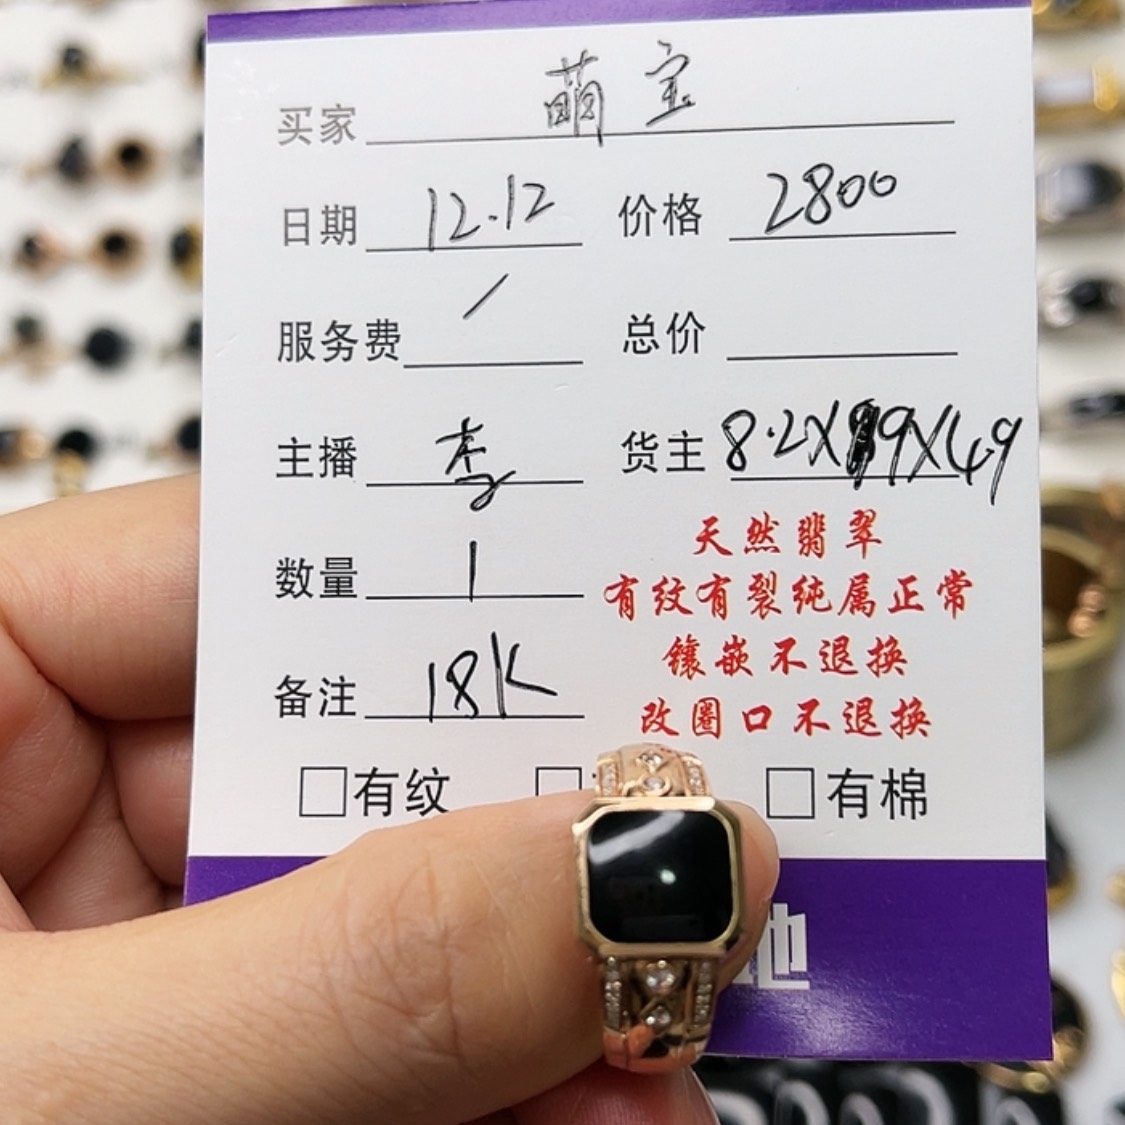 买家 萌宝
日期 12.12 价格 2800
服务费 / 总价
主播 李 货主 8.2X9X4.9
数量 1
天然翡翠
有纹有裂纯属正常
备注 18K
镶嵌不退换
改圈口不退换
有纹 有棉
地